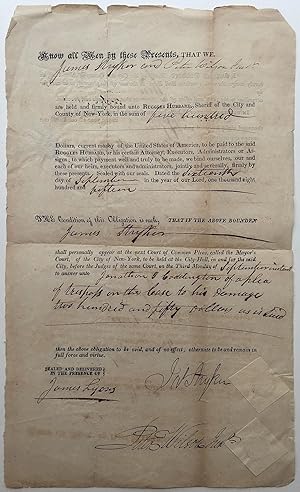 Know all Men by these Presents, THAT WE,
James Stryker and Peter Wilson Junr
are held and firmly bound unto RUGGLES HUBBARD, Sheriff of the City and
County of New-York, in the sum of five hundred
Dollars, current money of the United States of America, to be paid to the said
RUGGLES HUBBARD, or his certain Attorney, Executors, Administrators or As-
signs, to which payment well and truly to be made, we bind ourselves, our and
each of our heirs, executors and administrators, jointly and severally, firmly by
these presents. Sealed with our seals. Dated the Sixteenth
day of September in the year of our Lord, one thousand eight
hundred and fifteen
THE Condition of this Obligation is such, THAT IF THE ABOVE BOUNDEN
James Stryker
shall personally appear at the next Court of Common Pleas, called the Mayor's
Court, of the City of New-York, to be held at the City-Hall, in and for the said
City, before the Judges of the same Court, on the Third Monday of September instant
to answer unto Jonathan of a plea
of trespass on the Case to his damage
two hundred and fifty dollars as is said
then the above obligation to be void, and of no effect; otherwise to be and remain in
full force and virtue.
SEALED AND DELIVERED
IN THE PRESENCE OF
James Lyons
Jas Stryker
Peter Wilson Junr